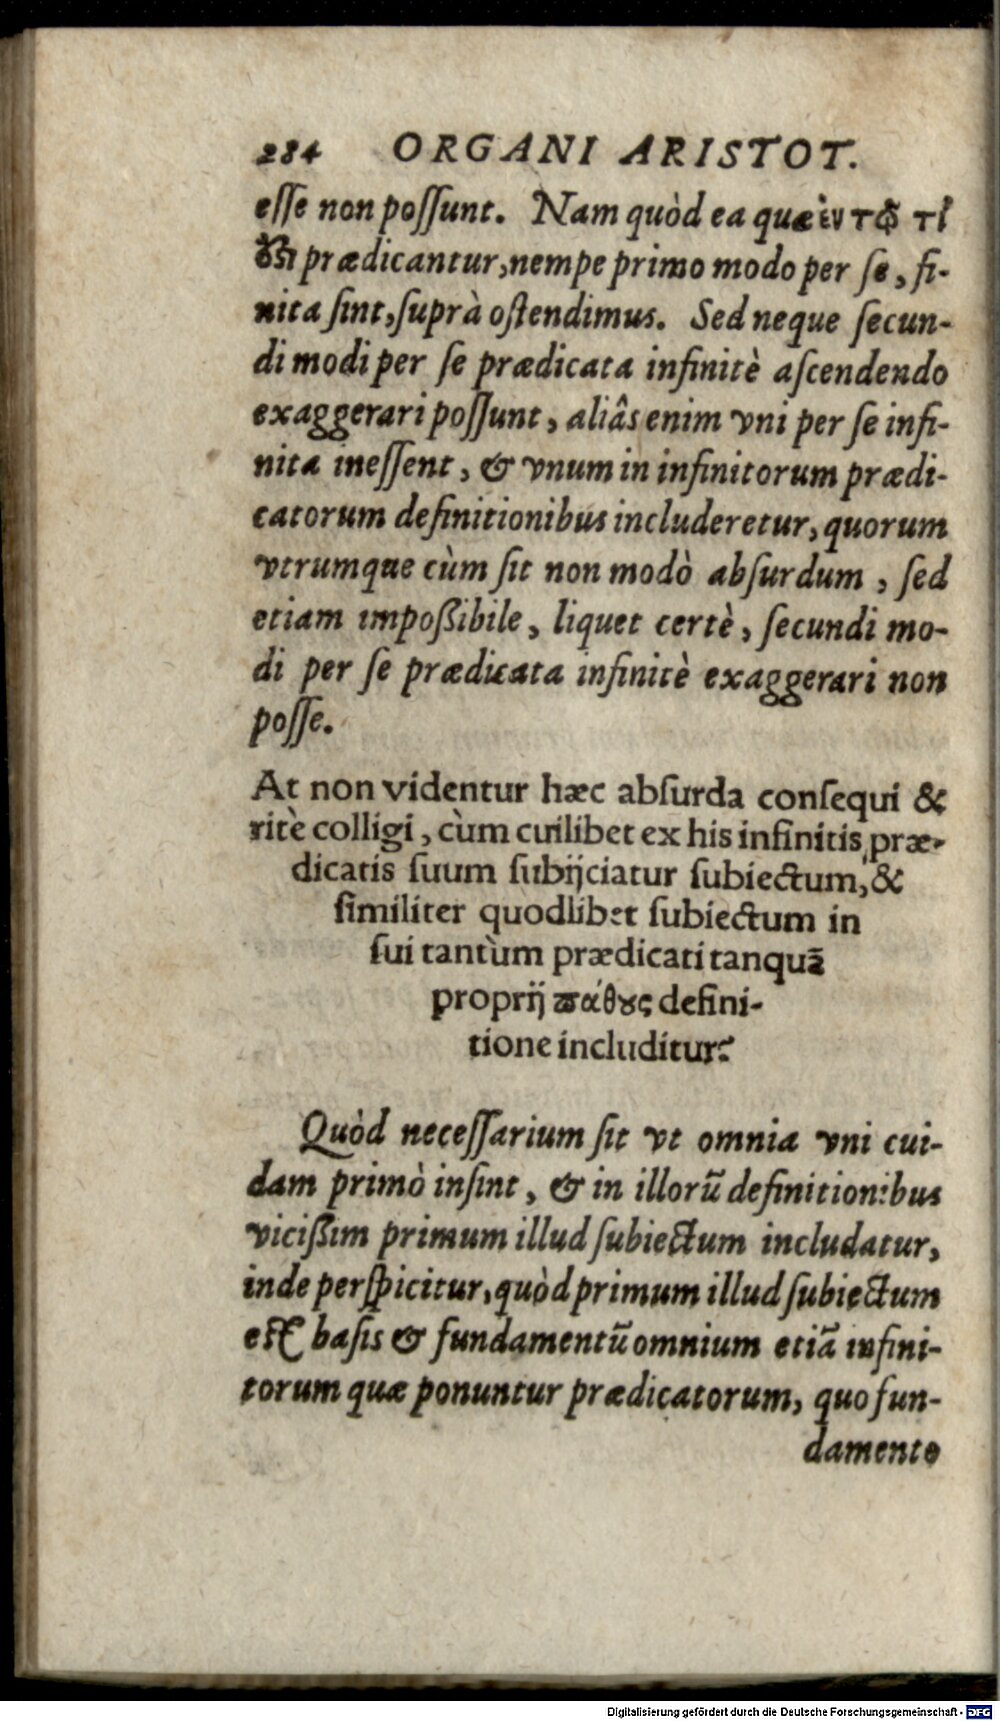 284 ORGANI ARISTOT.
esse non possunt. Nam quòd ea quæ ἐν τῷ τί
ὅτι prædicantur, nempe primo modo per se, fi-
nita sint, suprà ostendimus. Sed neque secun-
di modi per se prædicata infinitè ascendendo
exaggerari possunt, aliâs enim vni per se infi-
nita inessent, & vnum in infinitorum prædi-
catorum definitionibus includeretur, quorum
vtrumque cùm sit non modò absurdum, sed
etiam impoßibile, liquet certè, secundi mo-
di per se prædicata infinitè exaggerari non
posse.
At non videntur hæc absurda consequi &
ritè colligi, cùm cuilibet ex his infinitis præ-
dicatis suum subijciatur subiectum, &
similiter quodlibet subiectum in
sui tantùm prædicati tanquã
proprij πάθους defini-
tione includitur?
Quòd necessarium sit vt omnia vni cui-
dam primò insint, & in illorũ definitionibus
vicißim primum illud subiectum includatur,
inde perspicitur, quòd primum illud subiectum
est basis & fundamentũ omnium etiã infini-
torum quæ ponuntur prædicatorum, quo fun-
damento
Digitalisierung gefördert durch die Deutsche Forschungsgemeinschaft - DFG